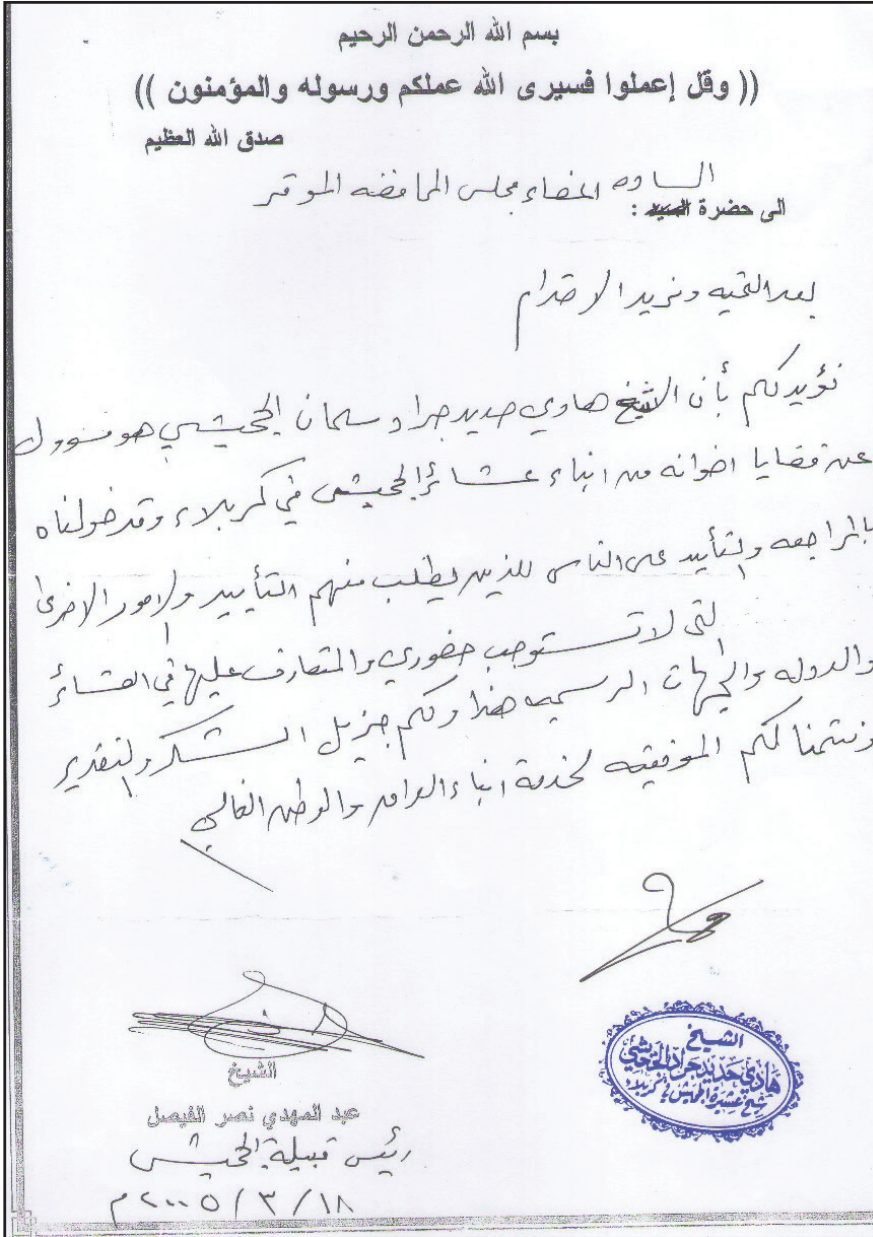 بسم الله الرحمن الرحيم
(( وقل إعملوا فسيرى الله عملكم ورسوله والمؤمنون ))
صدق الله العظيم
الى حضرة السيد : الساده اعضاء مجلس المحافظه الموقر
بعد التحيه ومزيد الاحترام
نؤيد لكم بأن الشيخ هادي حديد جراد سلمان الجحيشي هو مسوول
عن قضايا اخوانه من ابناء عشائر الجحيش في كربلاء وقد خولناه
بالمراجعه والتأييد على الناس للذين يطلب منهم التأييد والامور الاخرى
التي لا تستوجب حضوري والمتعارف عليها في العشائر
والدوله والجهات الرسميه هذا ولكم جزيل الشكر والتقدير
ونتمنا لكم الموفقيه لخدمة ابناء العراق والوطن الغالي
الشيخ
عبد المهدي نصر الفيصل
رئيس قبيلة الجحيش
١٨ / ٣ / ٢٠٠٥ م
الشيخ
هادي حديد جراد الجحيشي
شيخ عشيرة الجحيش في كربلاء